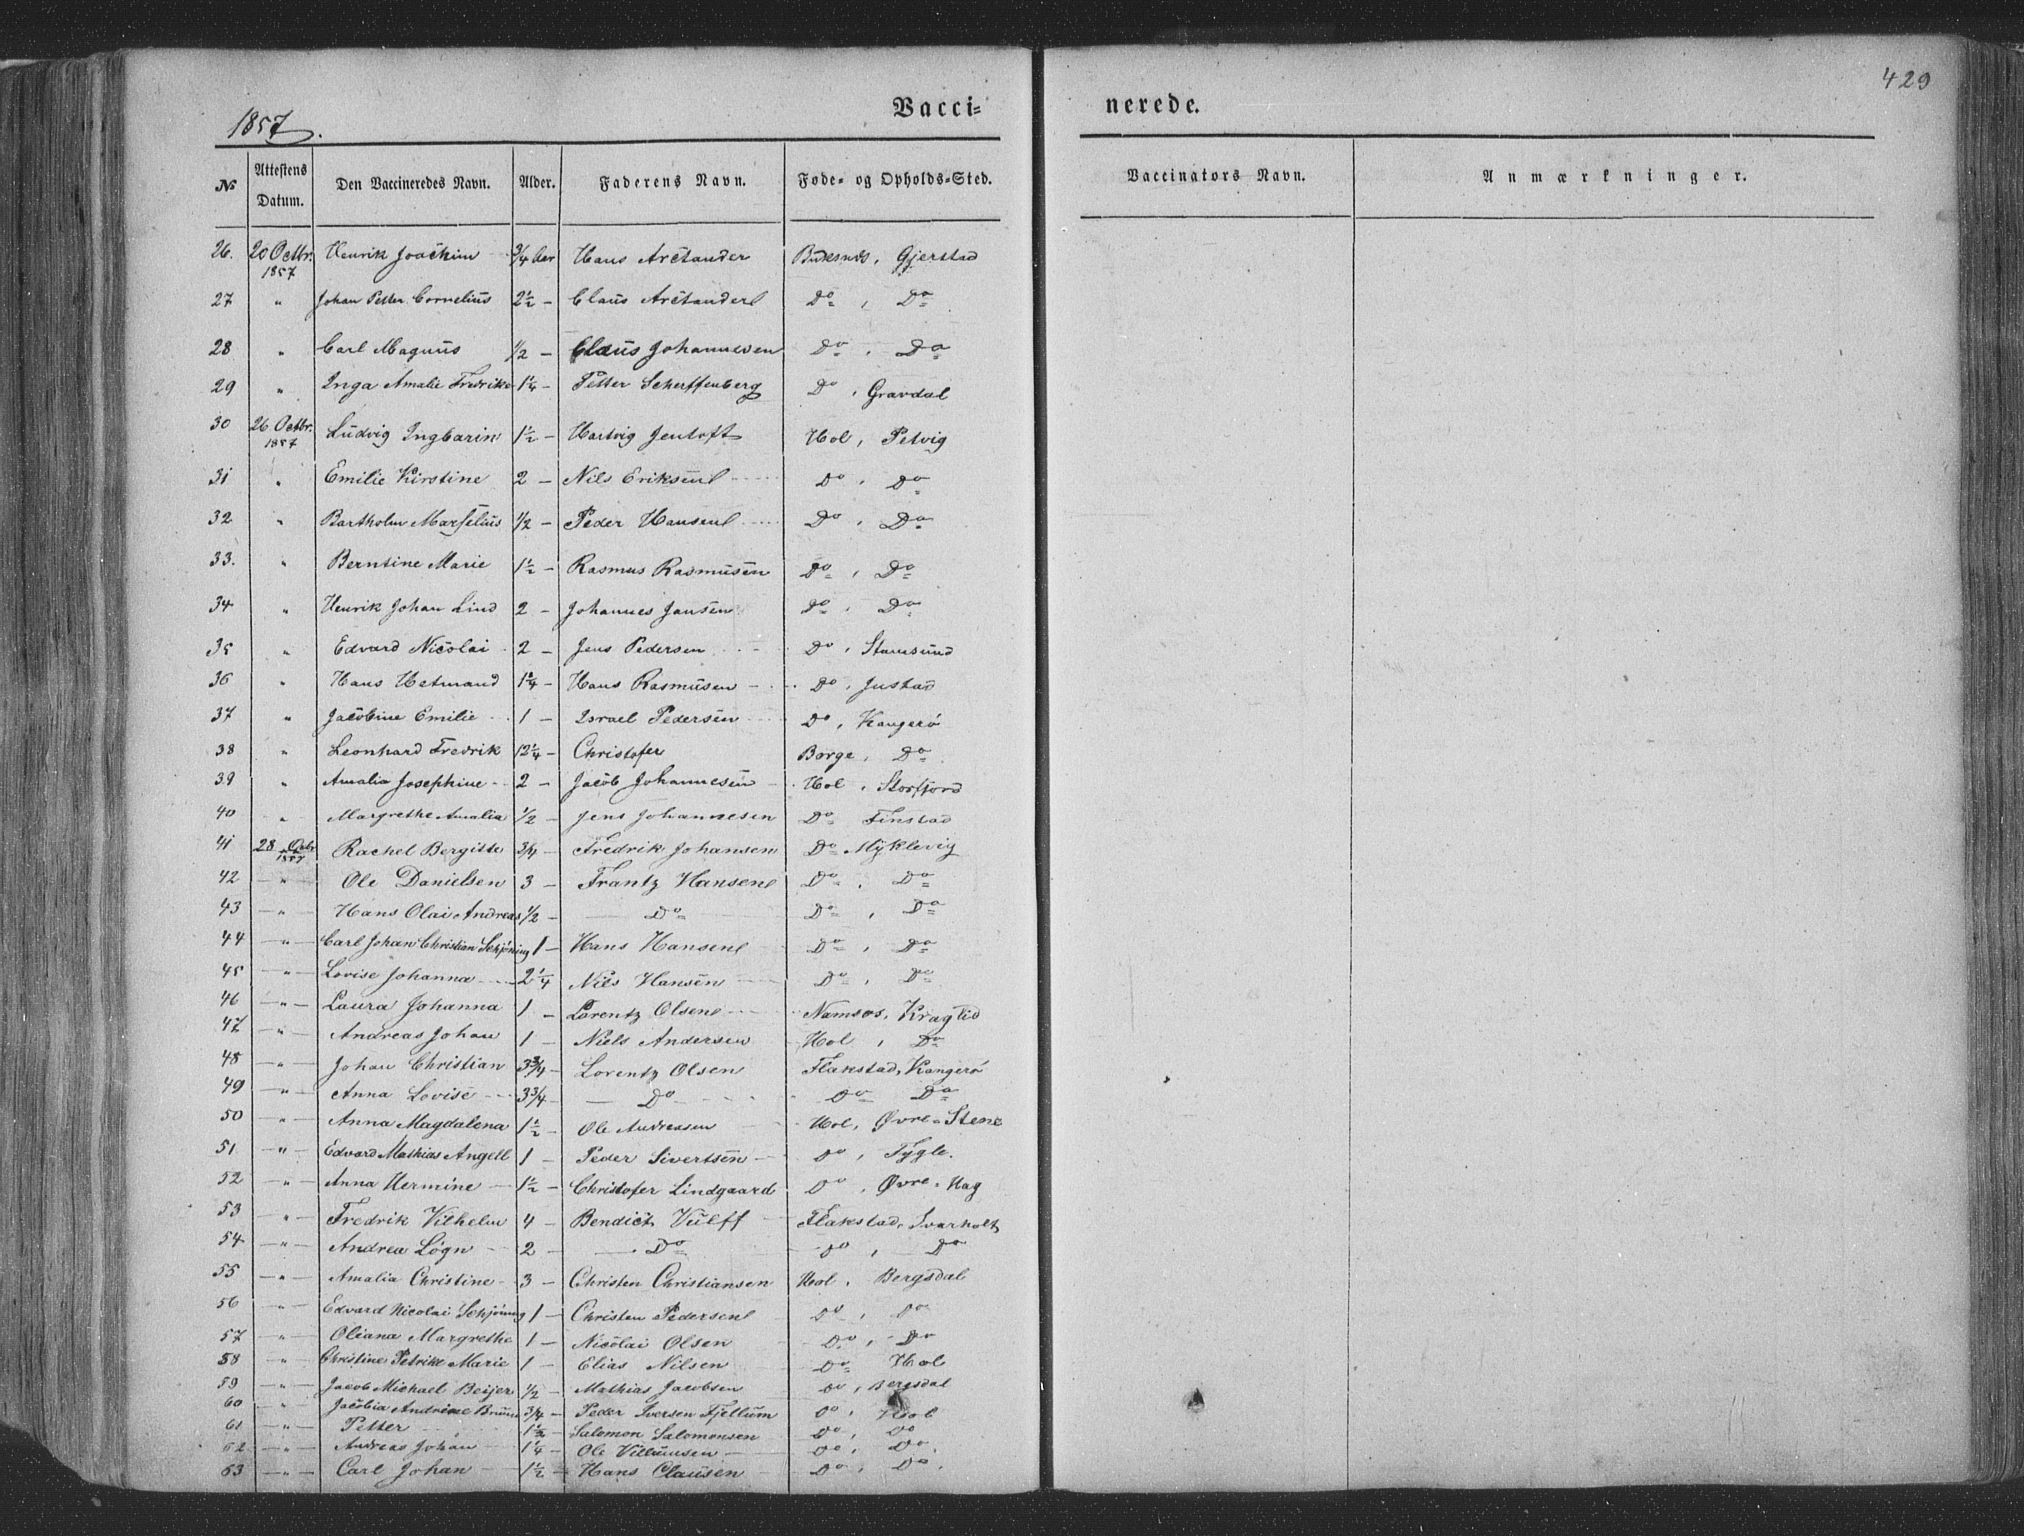 429
1857.
Vacci= nerede.
No Attestens Datum. Den Vaccineredes Navn. Alder. Faderens Navn. Føde- og Opholds-Sted. Vaccinators Navn. Anmærkninger.
26. 20 Octbr. 1857 Henrik Joachim 3/4 Aar Hans Arctander Buksnæs, Gjerstad
27 " Johan Petter Cornelius 2 1/2 - Claus Arctander Do, Do
28 " Carl Magnus 1/2 - Claus Johannesen Do, Do
29 " Inga Amalie Fredrike 1 1/4 - Petter Scherffenberg Do, Gravdal
30 26 Octbr. 1857 Ludvig Ingbarin 1 1/2 - Hartvig Jentoft Hol, Petvig
31 " Emilie Kirstine 2 - Nils Eriksen Do, Do
32 " Bartholm Marselius 1/2 - Peder Hansen Do, Do
33. " Berntine Marie 1 1/2 - Rasmus Rasmusen Do, Do
34 " Henrik Johan Lind 2 - Johannes Jansen Do, Do
35 " Edvard Nicolai 2 - Jens Pedersen Do, Stamsund
36 " Hans Hetmand 1 1/4 - Hans Rasmusen Do, Justad
37 " Jacobine Emilie 1 - Israel Pedersen Do, Kangerø
38 " Leonhard Fredrik 12 1/4 - Christofer Borge, Do
39 " Amalia Josephine 2 - Jacob Johannesen Hol, Storfjord
40 " Margrethe Amalia 1/2 - Jens Johannesen Do Finstad
41 28 Octbr 1857 Rachel Bergitte 3/4 - Fredrik Johansen Do Myklevig
42 " Ole Danielsen 3 - Frantz Hansen Do, Do
43 " Hans Olai Andreas 1/2 - Do Do, Do
44 " Carl Johan Christian Schjöning 1 - Hans Hansen Do, Do
45 " Lovise Johanna 2 1/4 Nils Hansen Do, Do
46 " Laura Johanna 1 - Lorentz Olsen Namsos, Kraglid
47 " Andreas Johan 1 - Niels Andersen Hol, Do
48 " Johan Christian 3 3/4 - Lorentz Olsen Flakstad, Kangerø
49 " Anna Lovise 3 3/4 - Do Do Do
50 " Anna Magdalena 1 1/2 - Ole Andreasen Hol, Øvre-Stene
51 " Edvard Mathias Angell 1 - Peder Sivertsen Do, Fygle.
52 " Anna Hermine 1 1/2 - Christofer Lindgaard Do, Øvre-Hag
53 " Fredrik Vilhelm 4 - Bendict Vulff Flakstad, Svarholt
54 " Andrea Løgn 2 - Do Do, Do
55 " Amalia Christine 3 - Christen Christiansen Hol, Bergsdal
56 " Edvard Nicolai Schjöning 1 - Christen Pedersen Do, Do
57 " Oliana Margrethe 1 - Nicolai Olsen Do, Do
58 " Christine Petrike Marie 1 - Elias Nilsen Do Hol
59 " Jacob Michael Beijer 1/2 - Mathias Jacobsen Do, Bergsdal
60 " Jacobia Andrine Bruun 3/4 - Peder Iversen Fjellum Do, Hol
61 " Petter 1 1/2 - Salomon Salomonsen Do, Do
62 " Andreas Johan 1 1/4 - Ole Villumsen Do, Do.
63 " Carl Johan 1 1/2 - Hans Clausen Do, Do.